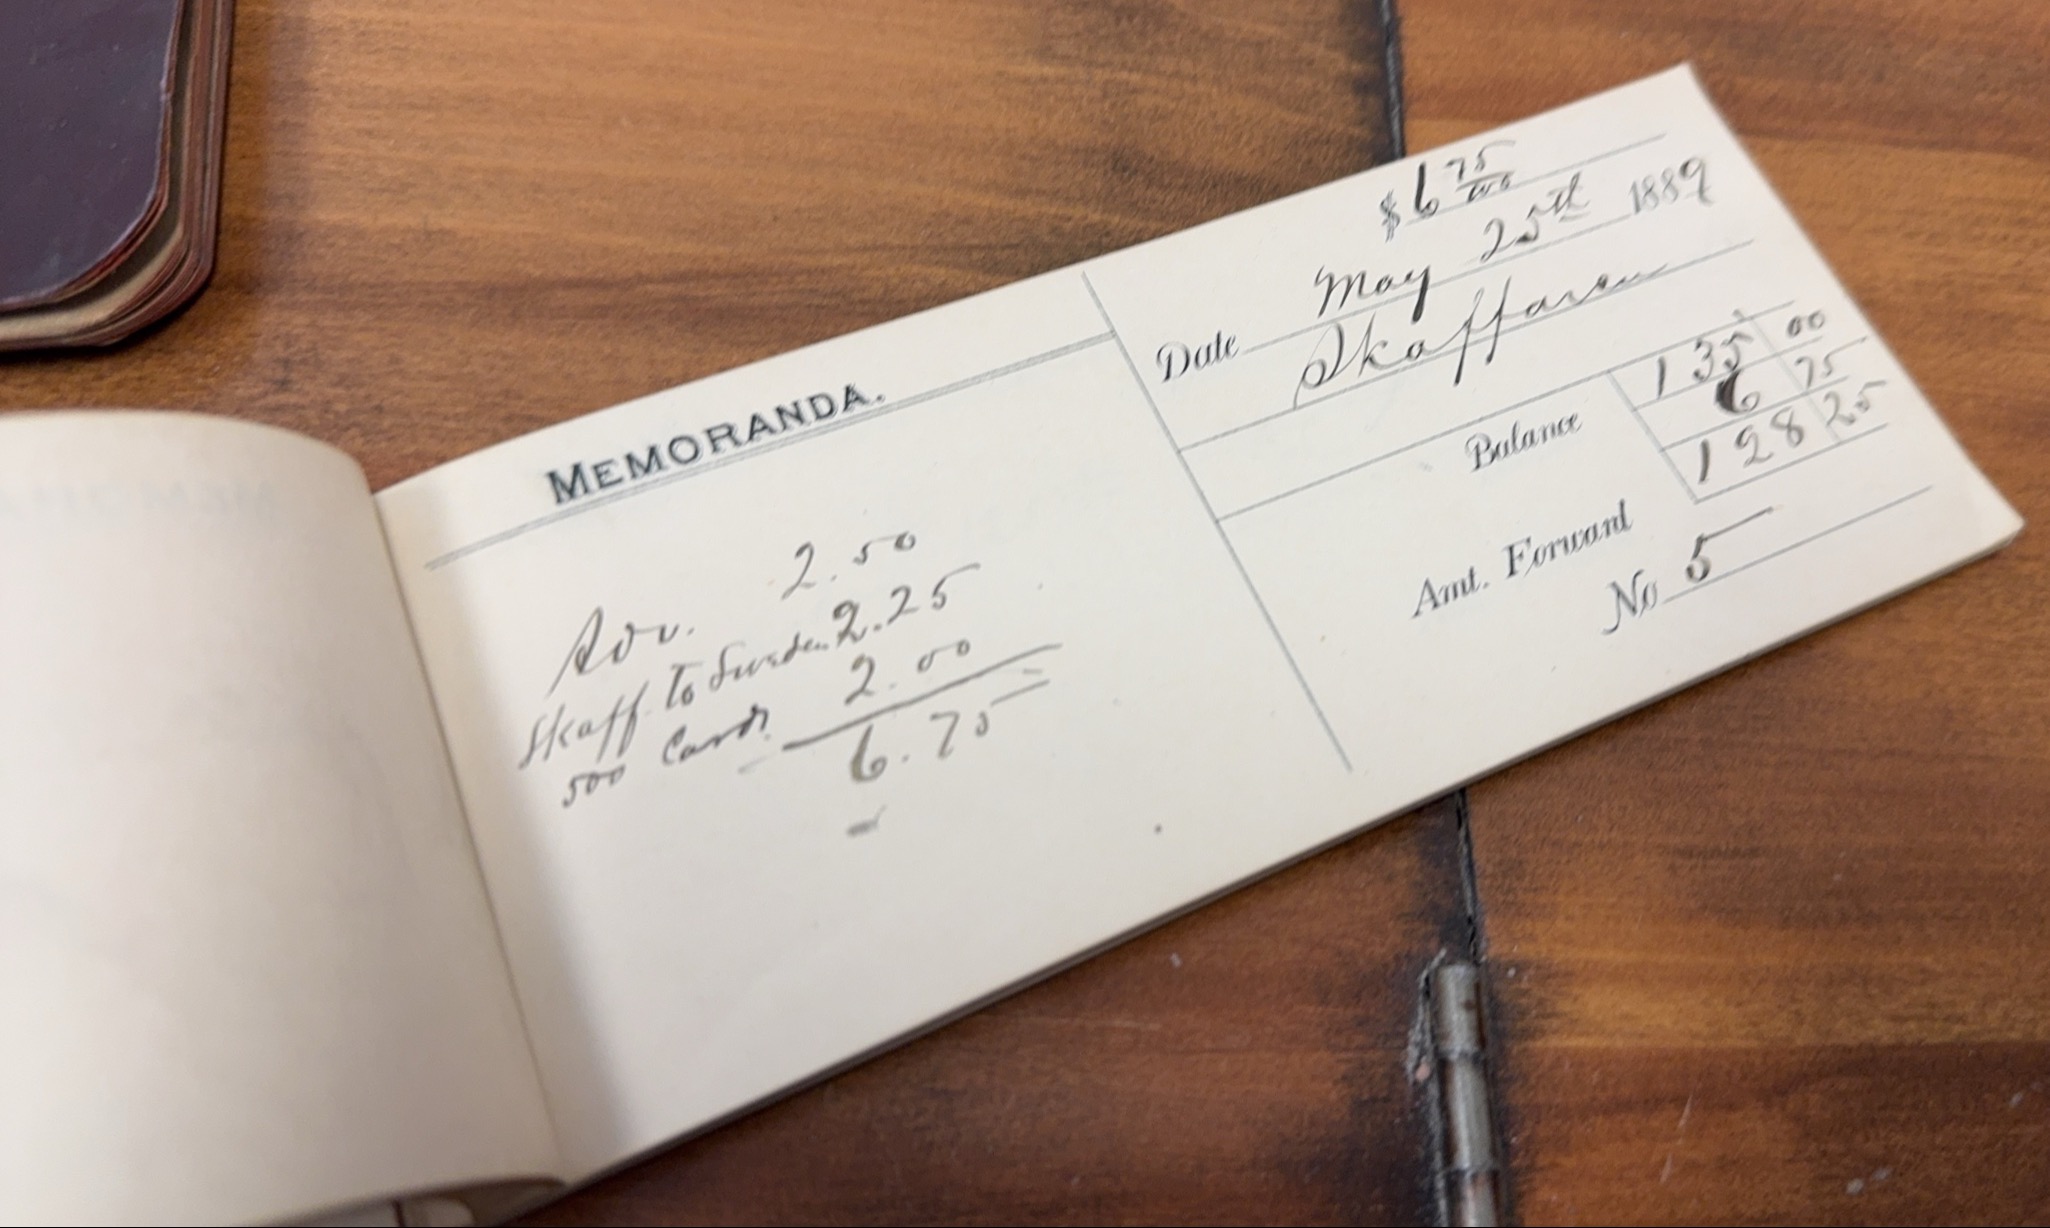 MEMORANDA.
Adv. 2.50
Skaff. To Sweden 2.25
500 Cards 2.00
6.75
$ 6 75/100
Date May 25th 1889
Skaffaren
135 00
Balance 6 75
128 25
Amt. Forward
No 5